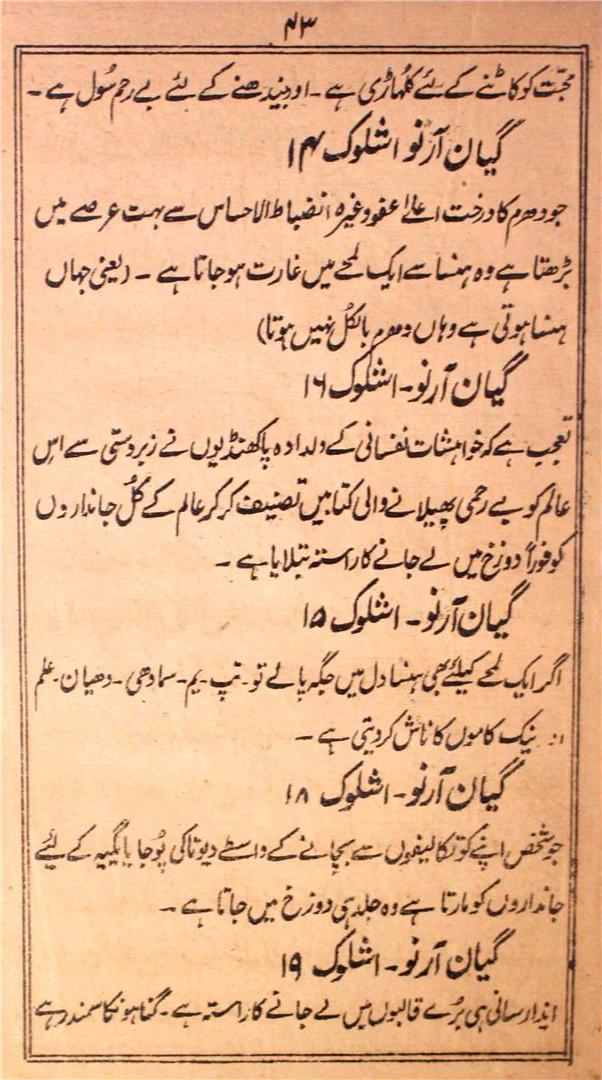 ۴۳
محبّت کو کاٹنے کے لئے کلہاڑی ہے ۔ اور بیندھنے کے لئے بے رحم سُول ہے ۔
گیان آرنو اشلوک ۱۴
جو دھرم کا درخت اعلےٰ عفو وغیرہ انضباط الاحساس سے بہت عرصے میں
بڑھتا ہے وہ ہنسا سے ایک لمحے میں غارت ہو جاتا ہے ۔ (یعنی جہاں
ہنسا ہوتی ہے وہاں دھرم بالکُل نہیں ہوتا)
گیان آرنو ۔ اشلوک ۱۶
تعجب ہے کہ خواہشات نفسانی کے دلدادہ پاکھنڈیوں نے زبردستی سے اس
عالم کو بے رحمی پھیلانے والی کتابیں تصنیف کر کر عالم کے کُل جانداروں
کو فوراً دوزخ میں لے جانے کا راستہ بتلایا ہے ۔
گیان آرنو ۔ اشلوک ۱۵
اگر ایک لمحے کیلئے بھی ہنسا دل میں جگہ پا لے تو ۔ تپ ۔ یم ۔ سمادھی ۔ دھیان ۔ علم
نیک کاموں کا ناش کر دیتی ہے ۔
گیان آرنو ۔ اشلوک ۱۸
جو شخص اپنے کو تکالیفوں سے بچانے کے واسطے دیوتا کی پُوجا یا یگیہ کے لئے
جانداروں کو مارتا ہے وہ جلد ہی دوزخ میں جاتا ہے ۔
گیان آرنو ۔ اشلوک ۱۹
ایذا رسانی ہی بُرے قالبوں میں لے جانے کا راستہ ہے ۔ گناہونکا سمندر ہے